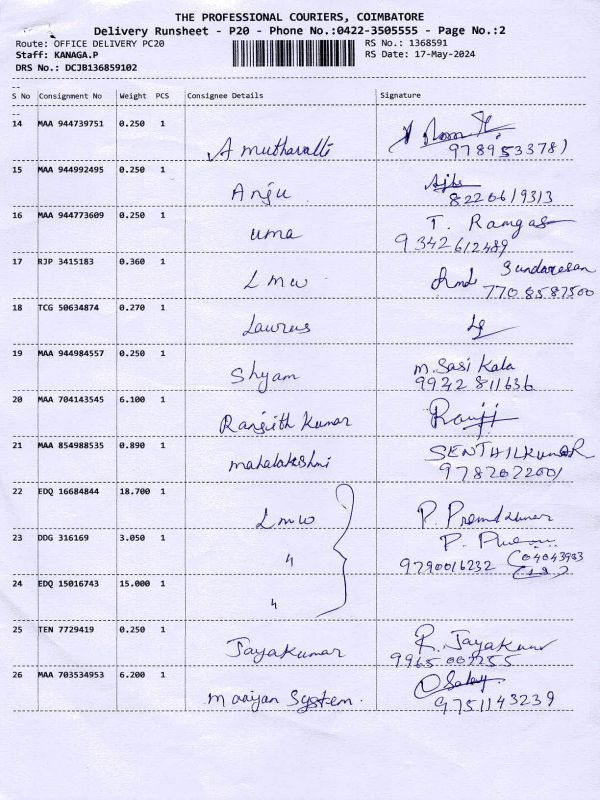 THE PROFESSIONAL COURIERS, COIMBATORE
Delivery Runsheet - P20 - Phone No.:0422-3505555 - Page No.:2
Route: OFFICE DELIVERY PC20 RS No.: 1368591
Staff: KANAGA.P RS Date: 17-May-2024
DRS No.: DCJB136859102
S No Consignment No Weight PCS Consignee Details Signature
14 MAA 944739751 0.250 1
Amuthavalli 9789533781
15 MAA 944992495 0.250 1
Anju 8220619313
16 MAA 944773609 0.250 1 T. Ramgas
uma 9342612489
17 RJP 3415183 0.360 1 Sundaresan
Lmw 7708587500
18 TCG 50634874 0.270 1
Laurus
19 MAA 944984557 0.250 1 M. Sasi Kala
Shyam 9942811636
20 MAA 704143545 6.100 1
Ranjith Kumar Ranji
21 MAA 854988535 0.890 1 SENTHILKUMAR
mahalakshmi 9787072001
22 EDQ 16684844 18.700 1
Lmw P. Premkumar
23 DDG 316169 3.050 1 P.
" 9790016232
24 EDQ 15016743 15.000 1
"
25 TEN 7729419 0.250 1 R. Jayakumar
Jayakumar 9965007255
26 MAA 703534953 6.200 1
maaiyan System. 9751143239